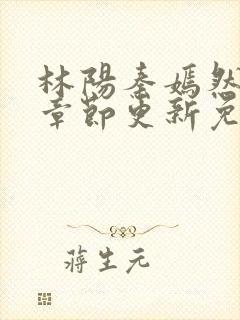 林陽秦嫣然
章節更新免
蔣生元